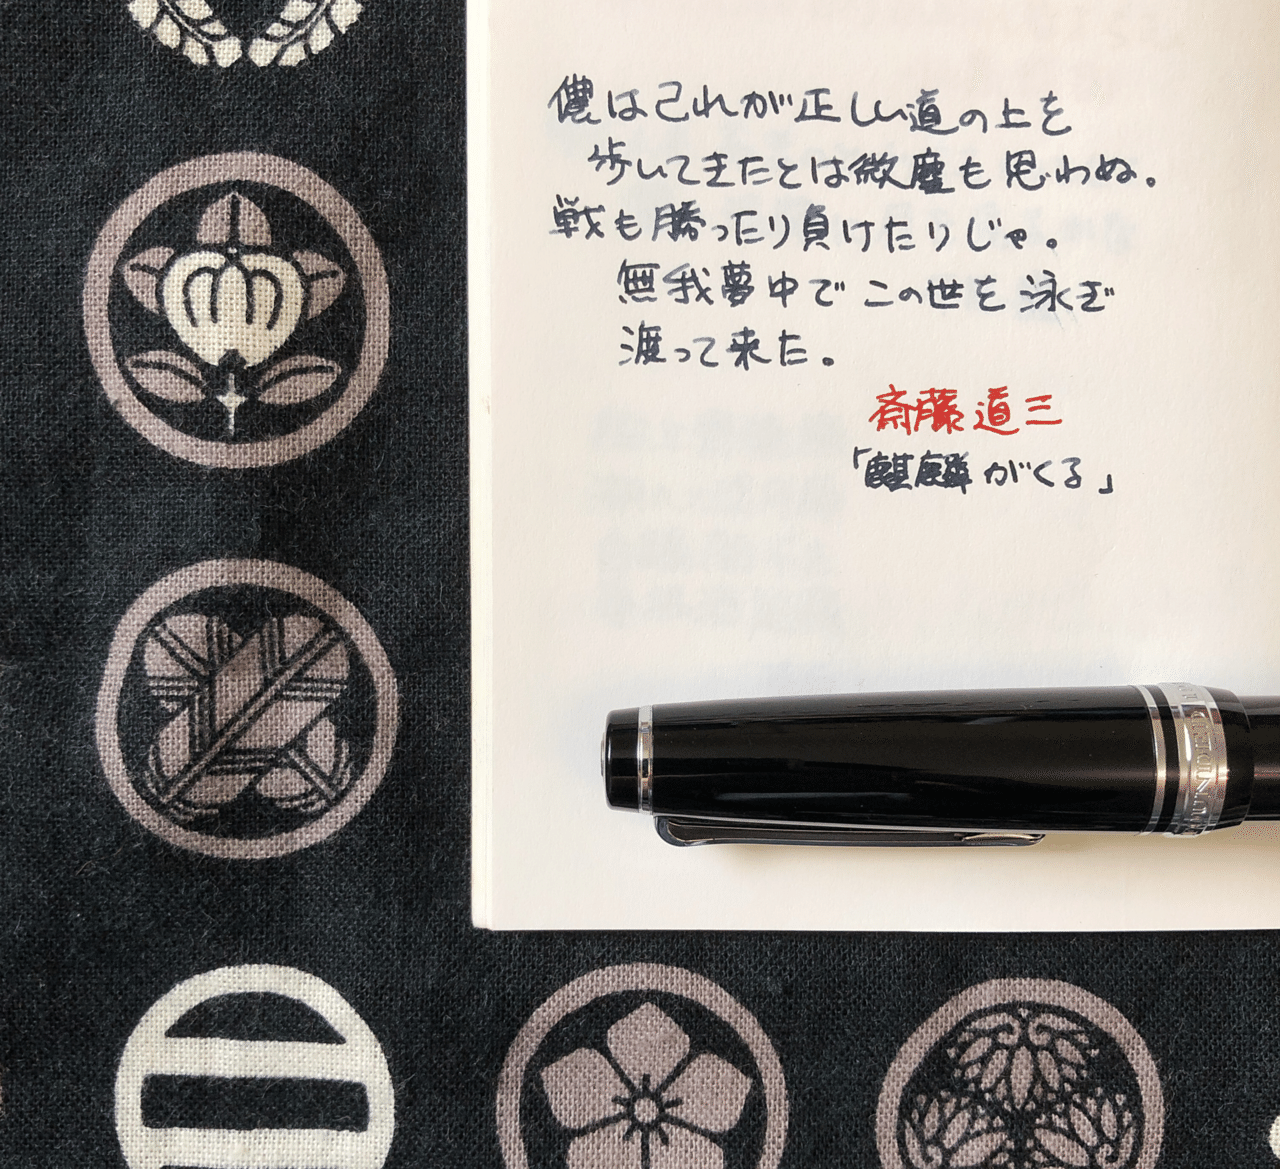 儂は己れが正しい道の上を
歩いてきたとは微塵も思わぬ。
戦も勝ったり負けたりじゃ。
無我夢中でこの世を泳ぎ
渡って来た。
斎藤道三
「麒麟がくる」